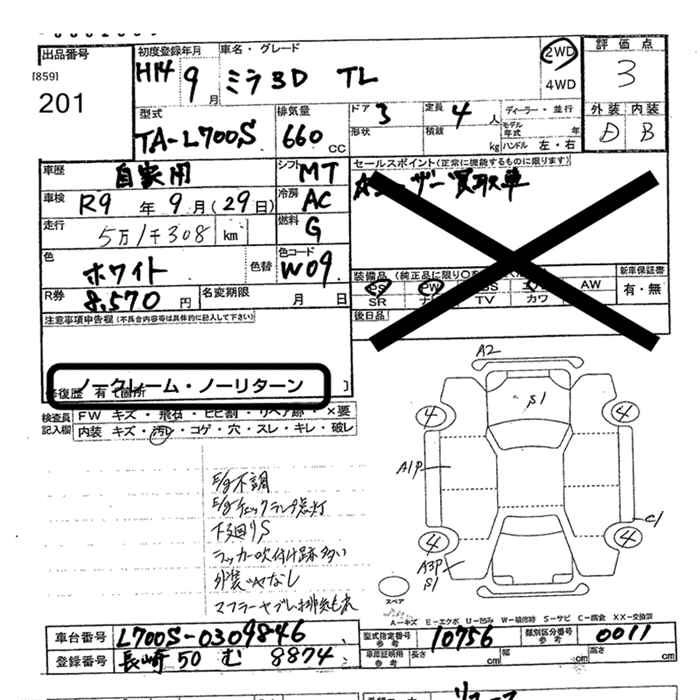 出品番号
[859]
201
初度登録年月
H14 9月
車名・グレード
ミラ3D TL
2WD
4WD
評価点
3
外装 内装
D B
型式
TA-L700S
排気量
660 CC
ドア 3
定員 4 人
形状
積載 kg
ディーラー・並行
モデル年式 年
ハンドル 左・右
車歴 自家用
シフト MT
車検 R9年9月(29日)
冷房 AC
走行 5万1千308 km
燃料 G
色 ホワイト 色替
色コード W09
R券 8,570円
名変期限 月 日
セールスポイント(正常に機能するものに限ります)
ユーザー買取車
装備品
PS PW
AW
SR
TV カワ
新車保証書
有・無
後日品
注意事項申告欄(不具合内容等は具体的に記入して下さい)
ノークレーム・ノーリターン
検査員記入欄
FW キズ・飛石・ヒビ割・リペア跡・×要
内装 キズ・汚レ・コゲ・穴・スレ・キレ・破レ
E/g不調
E/gチェックランプ点灯
下廻りS
ラッカー吹付け跡多い
外装ツヤなし
A2
S1
4
4
A1P
C1
4
4
A3P
S1
スペア
A-キズ E-エクボ U-凹み W-補修跡 S-サビ C-腐食 XX-交換済
車台番号 L700S-0309846
型式指定番号 参考 10756
類別区分番号 参考 0011
登録番号 長崎 50 む 8874
車庫証明用 参考
長さ cm
幅 cm
高さ cm